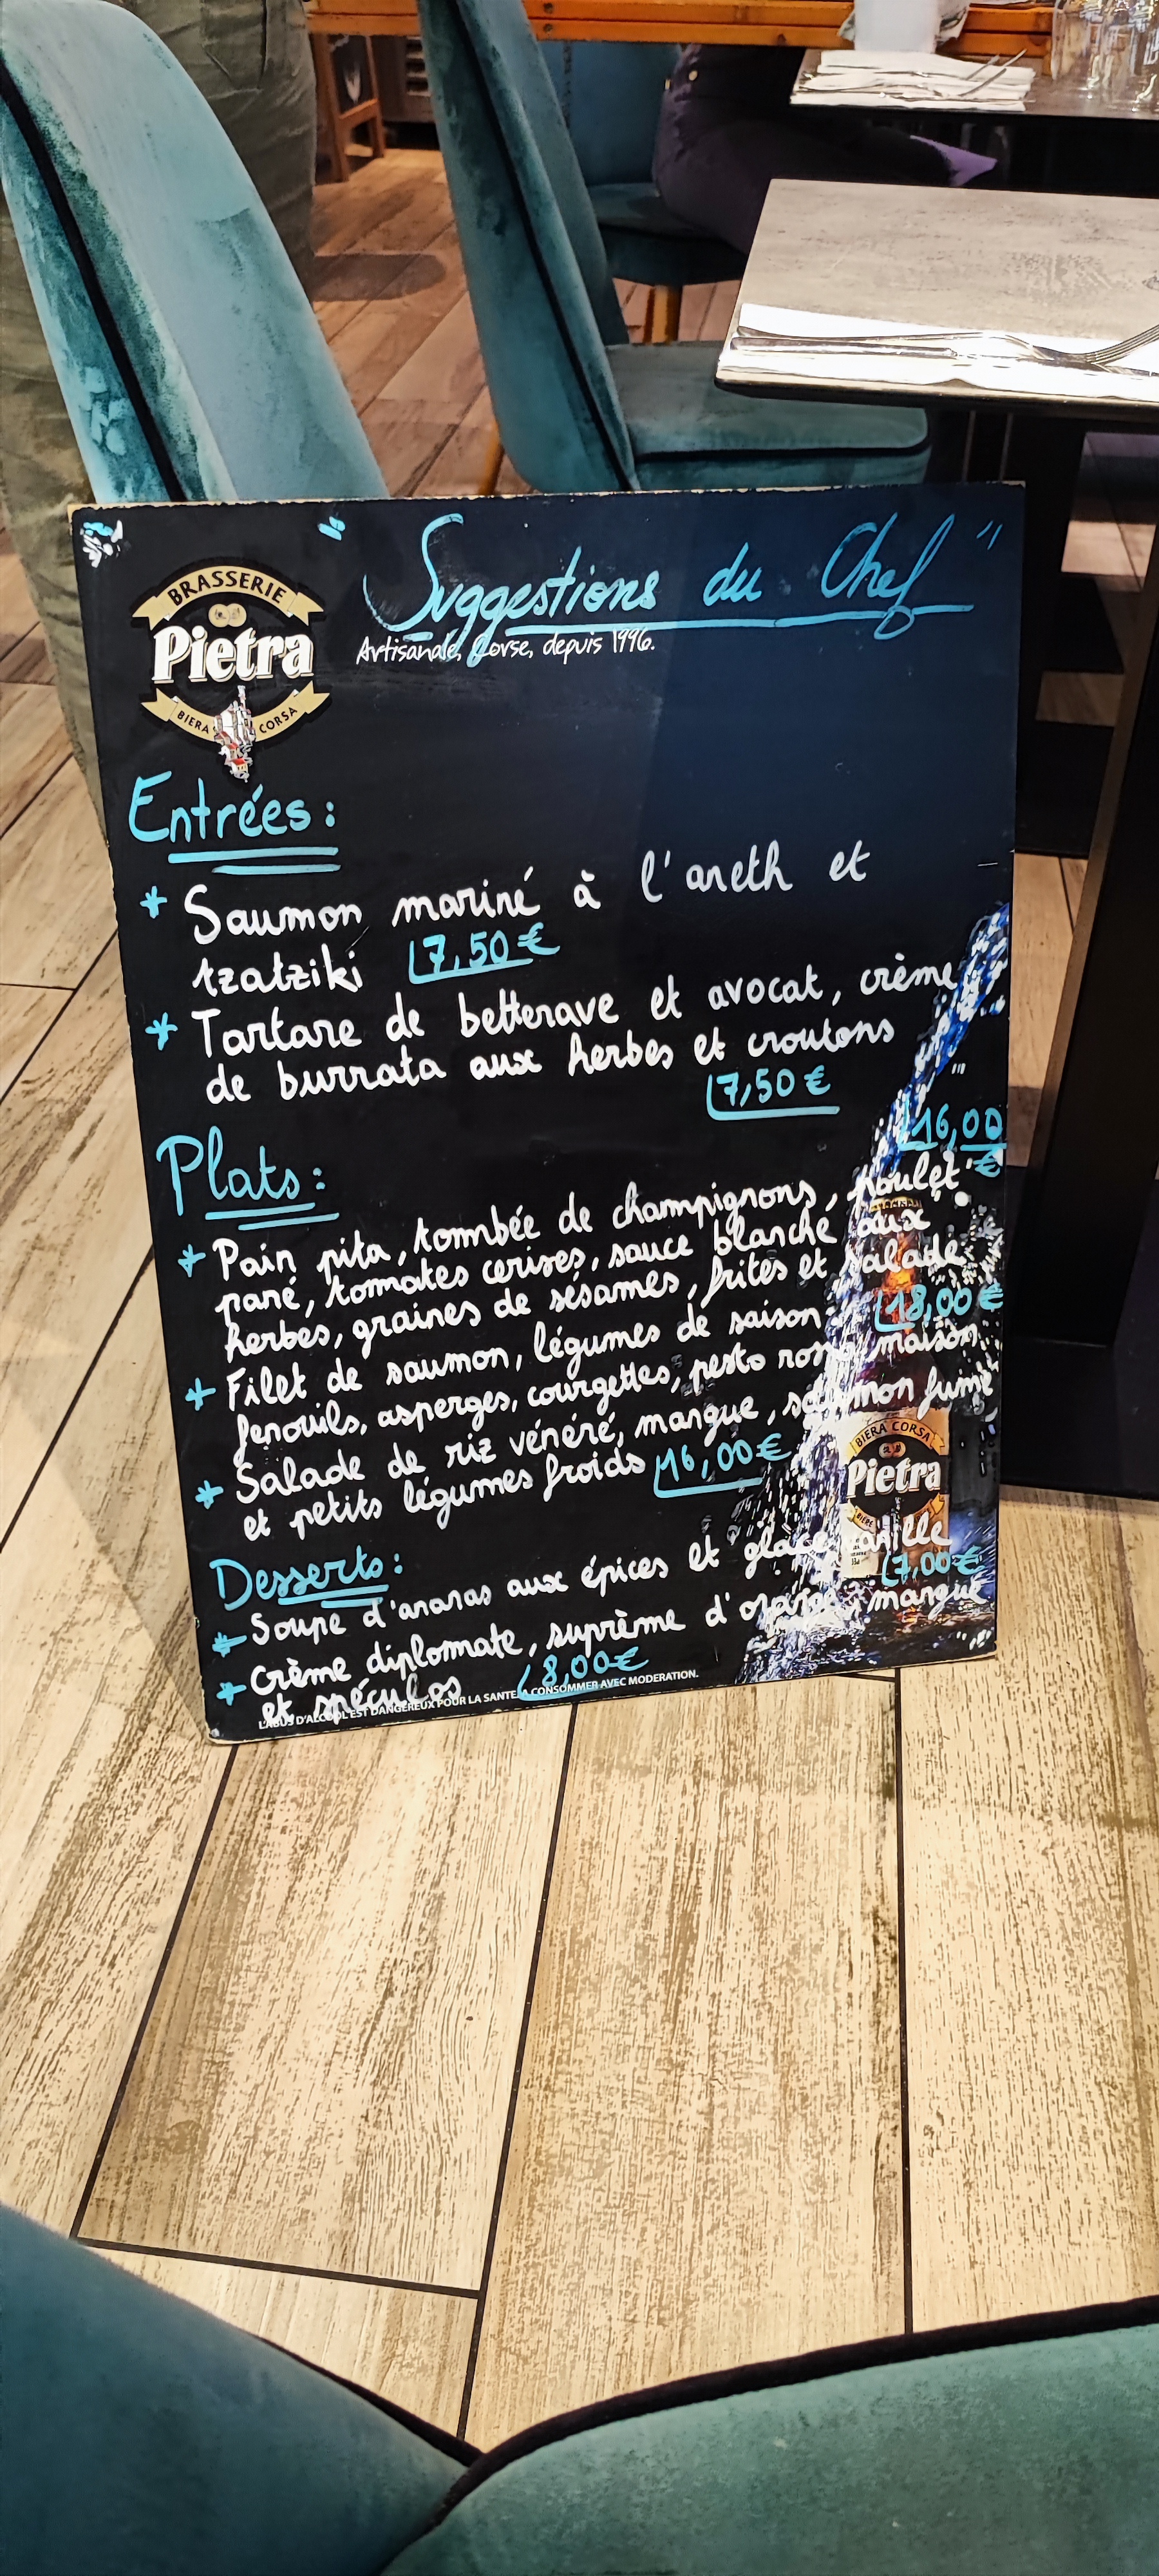 " Suggestions du Chef "
BRASSERIE
Pietra
BIERA CORSA
Artisanale, Corse, depuis 1996.
Entrées :
* Saumon mariné à l'aneth et
tzatziki 7,50 €
* Tartare de betterave et avocat, crème
de burrata aux herbes et croutons
7,50 €
Plats :
16,00 €
* Pain pita, tombée de champignons, poulet
pané, tomates cerises, sauce blanche aux
herbes, graines de sésames, frites et salade
* Filet de saumon, légumes de saison : 18,00 €
fenouils, asperges, courgettes, pesto rosso maison
* Salade de riz vénéré, mangue, saumon fumé
et petits légumes froids 16,00 €
BIERA CORSA
Pietra
Desserts :
* Soupe d'ananas aux épices et glace vanille
7,00 €
* Crème diplomate, suprème d'orange, mangue
et spéculos 8,00 €
L'ABUS D'ALCOOL EST DANGEREUX POUR LA SANTE, A CONSOMMER AVEC MODERATION.